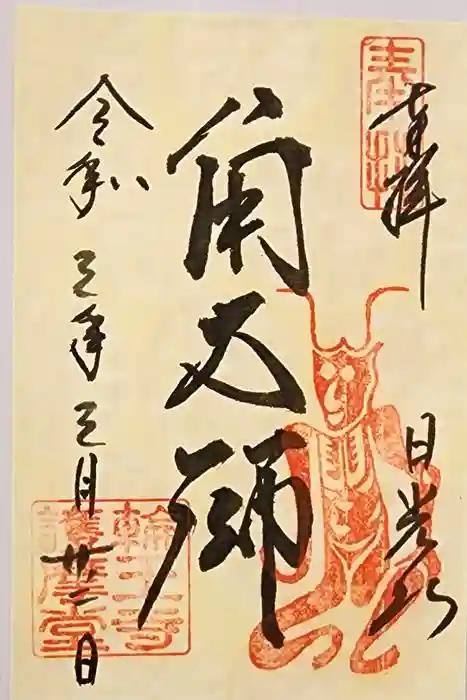 奉拝
日光山
角大師
令和三年三月廿二日
輪王寺
護摩堂